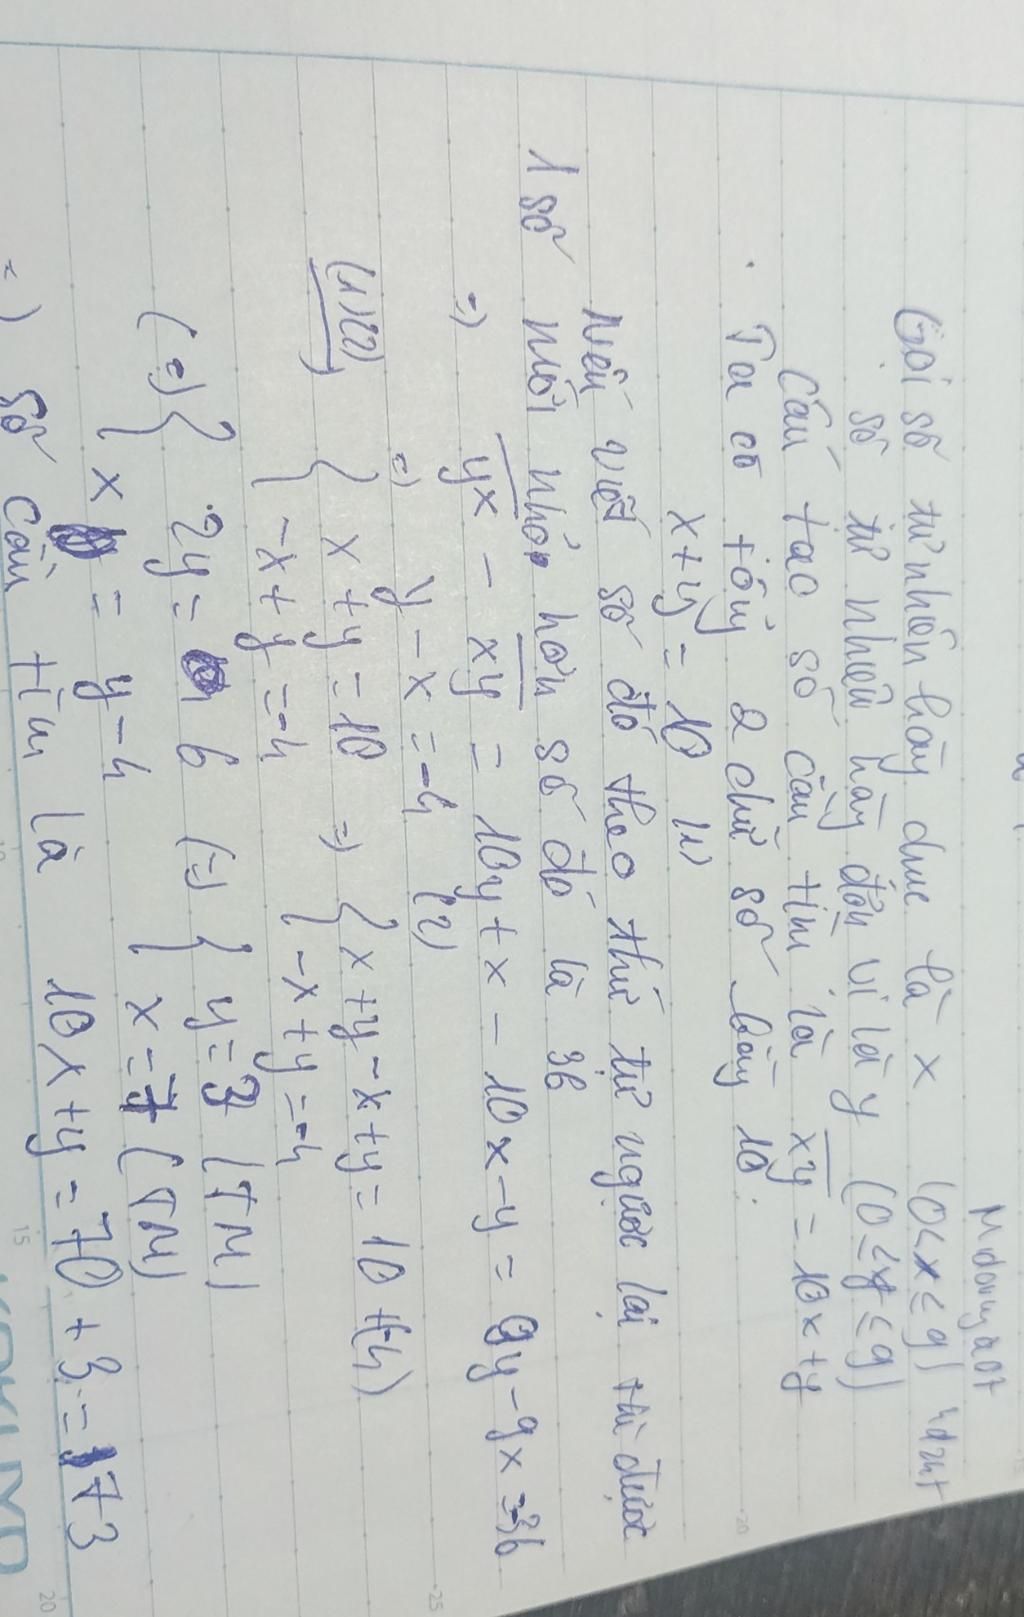 Gọi số tự nhiên hàng chục là x (0<x≤9)
số tự nhiên hàng đơn vị là y (0≤y≤9)
Cấu tạo số cần tìm là xy = 10x+y
Ta có tổng 2 chữ số bằng 10.
x+y = 10 (1)
Nếu viết số đó theo thứ tự ngược lại thì được
1 số mới nhỏ hơn số đó là 36
=) yx - xy = 10y + x - 10x - y = 9y - 9x = -36
=) y - x = -4 (2)
(1)(2) { x + y = 10 =) { x + y - x + y = 10 + (-4)
{ -x + y = -4 { -x + y = -4
(=) { 2y = 6 (=) { y = 3 (TM)
{ x = y - 4 { x = 7 (TM)
=) Số cần tìm là 10x + y = 70 + 3 = 73